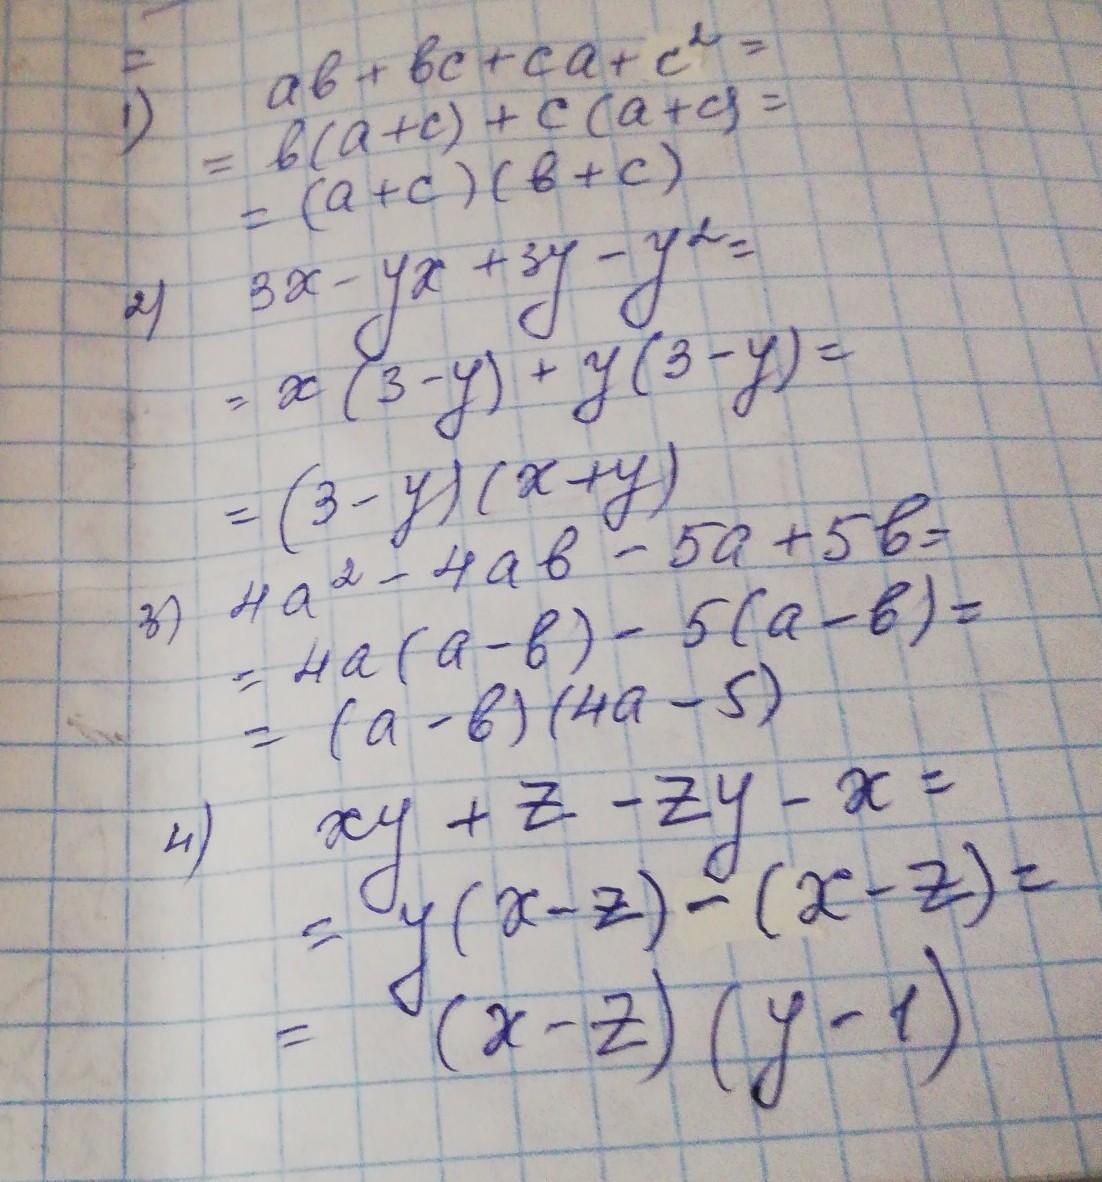 =
1) ab + bc + ca + c² =
= b(a+c) + c(a+c) =
= (a+c)(b+c)
2) 3x - yx + 3y - y² =
= x(3-y) + y(3-y) =
= (3-y)(x+y)
3) 4a² - 4ab - 5a + 5b =
= 4a(a-b) - 5(a-b) =
= (a-b)(4a-5)
4) xy + z - zy - x =
= y(x-z) - (x-z) =
= (x-z)(y-1)